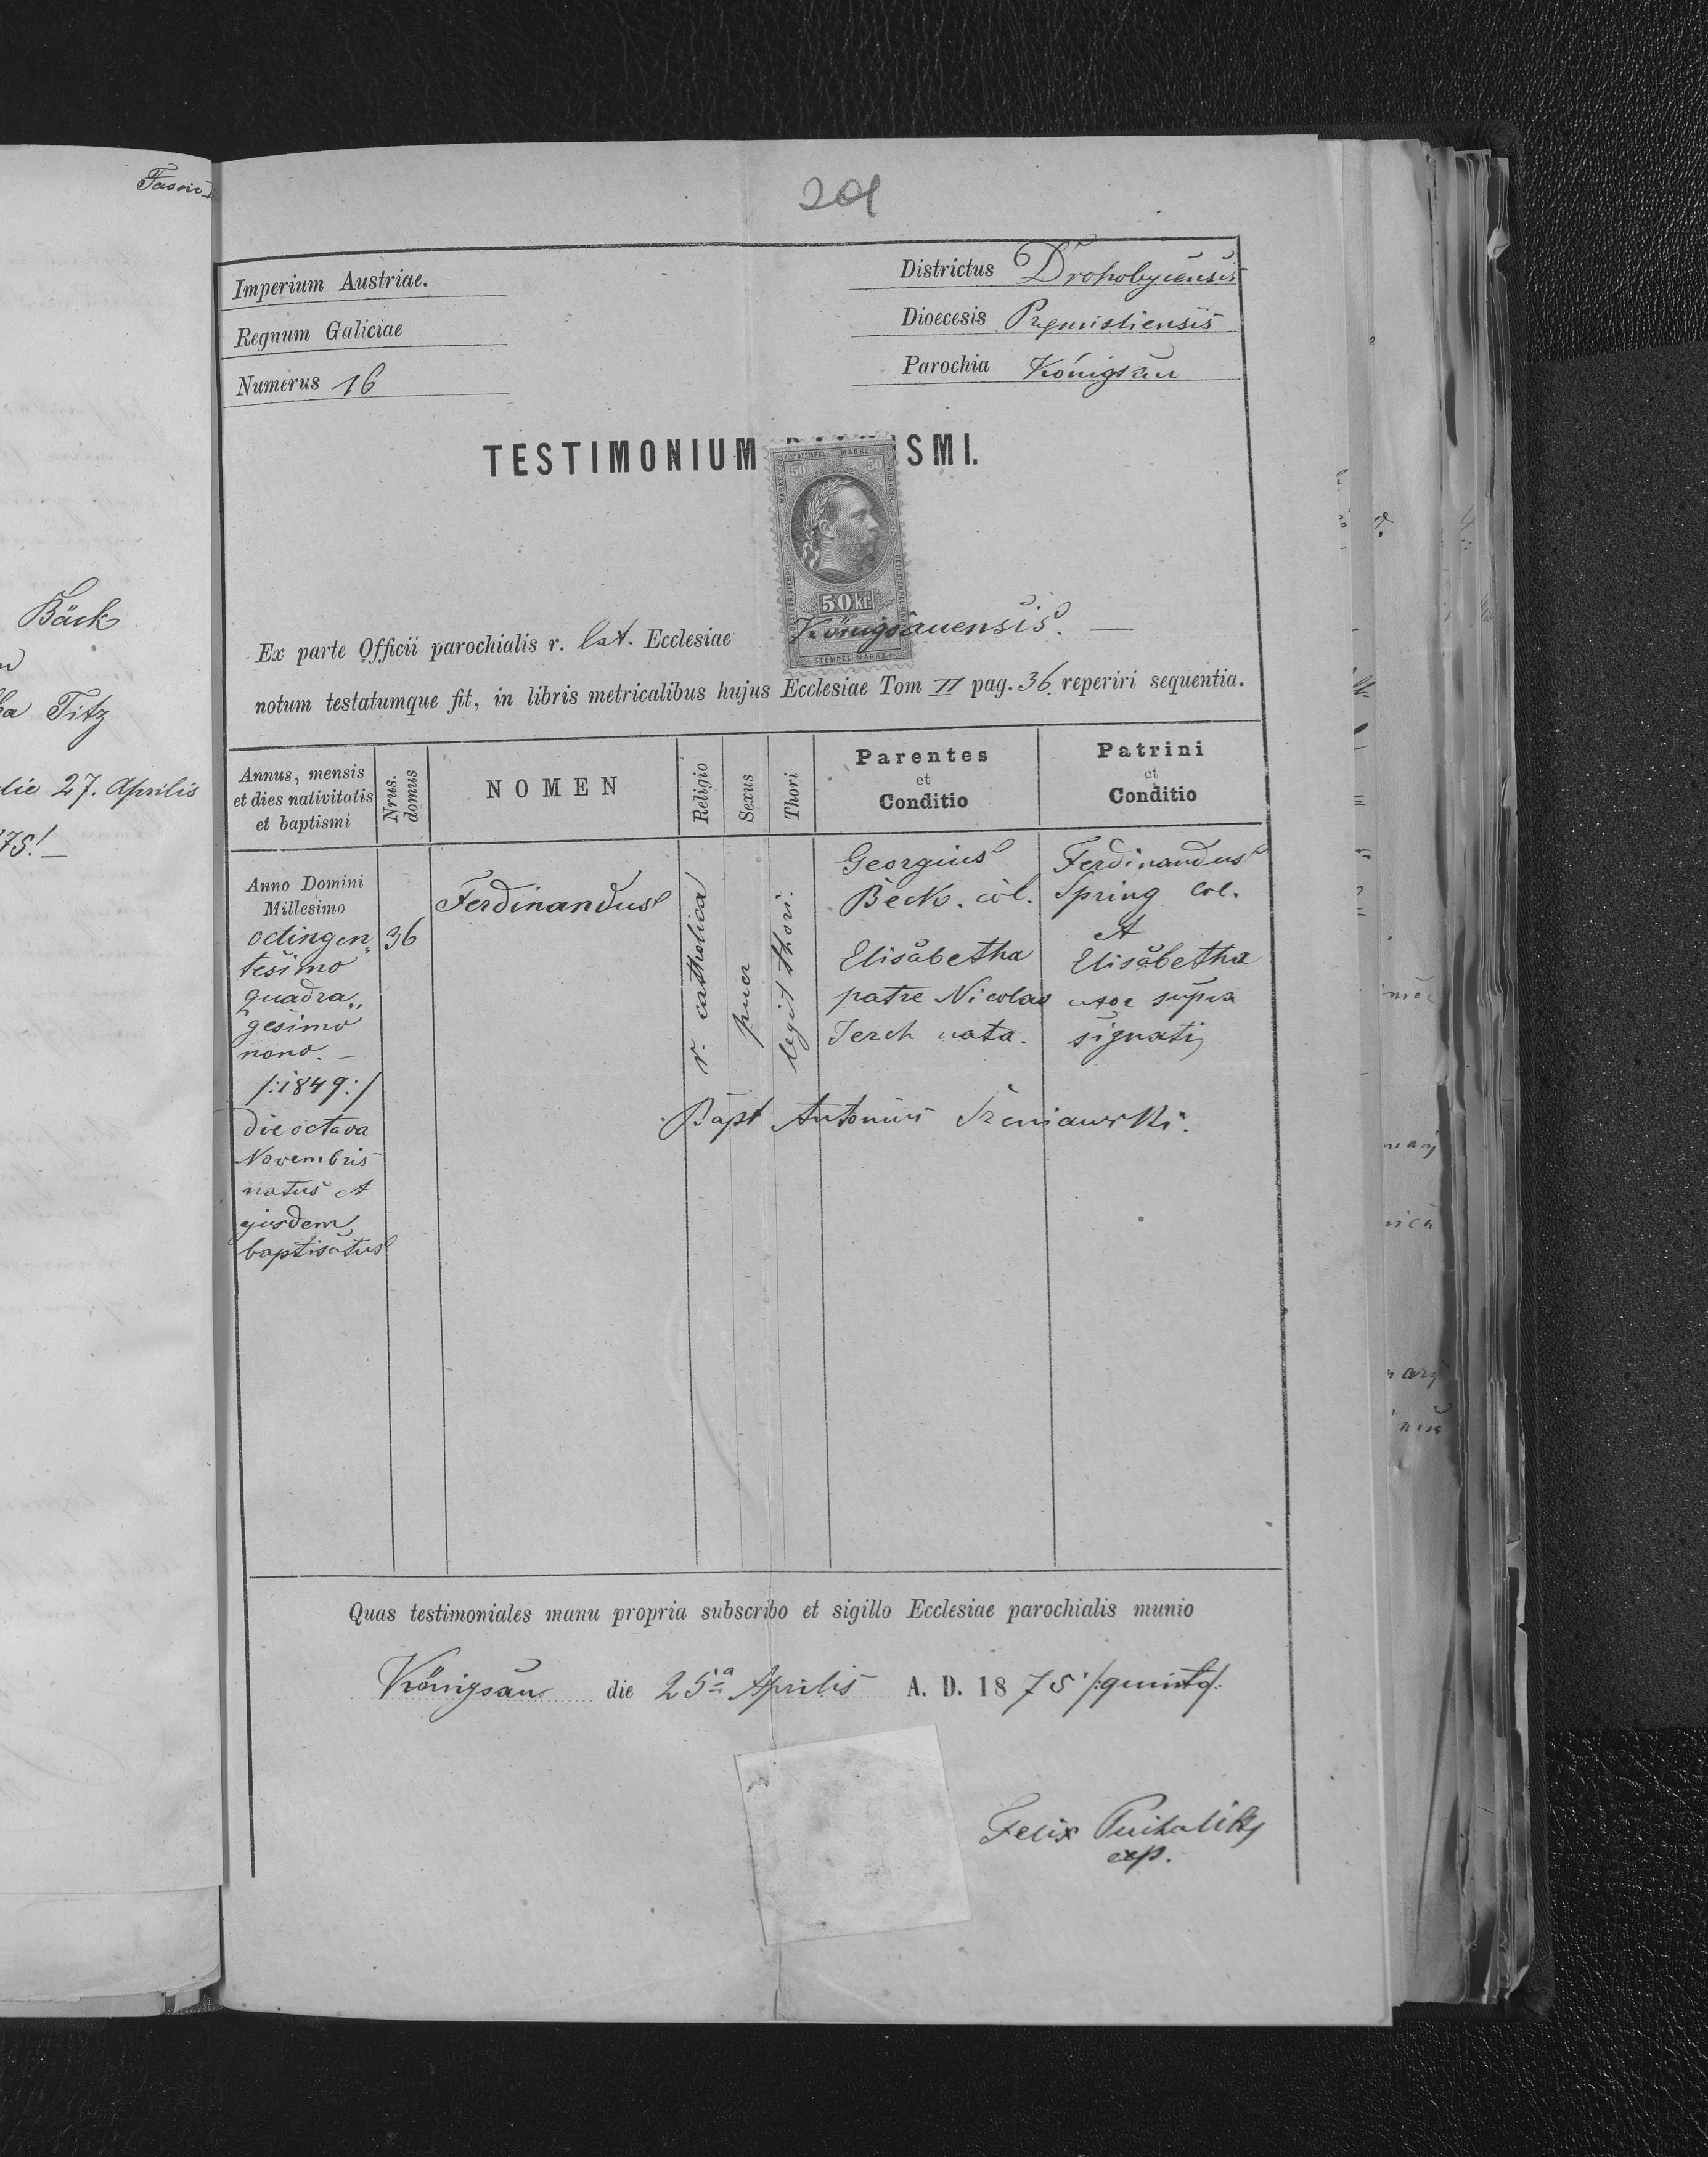 Fasow
Bäck
Titz
die 27. Aprilis
75!
201
Imperium Austriae.
Regnum Galiciae
Numerus 16
Districtus Drohobycensis
Dioecesis Przmisliensis
Parochia Königsau
TESTIMONIUM SMI.
STEMPEL MARKE
50 50
50 kr
STEMPEL-MARKE
Ex parte Officii parochialis r. lat. Ecclesiae Königsauensis. —
notum testatumque fit, in libris metricalibus hujus Ecclesiae Tom II pag. 36. reperiri sequentia.
Annus, mensis
et dies nativitatis
et baptismi
Nrus.
domus
NOMEN
Religio
Sexus
Thori
Parentes
et
Conditio
Patrini
et
Conditio
Anno Domini
Millesimo
octingen„
tesimo
quadra„
gesimo
nono. —
/:1849:/
die octava
Novembris
natus et
ejusdem
baptisatus
36
Ferdinandus
r. catholica
puer
legit thori.
Georgius
Beck. col.
Elisabetha
patre Nicolao
Jerch nata.
Ferdinandus
Spring col.
et
Elisabetha
uxor supra
signati
Bapt Antonius Szeniawski.
Quas testimoniales manu propria subscribo et sigillo Ecclesiae parochialis munio
Königsau die 25ª Aprilis A. D. 1875 /:quinto/:
Felix
exp.